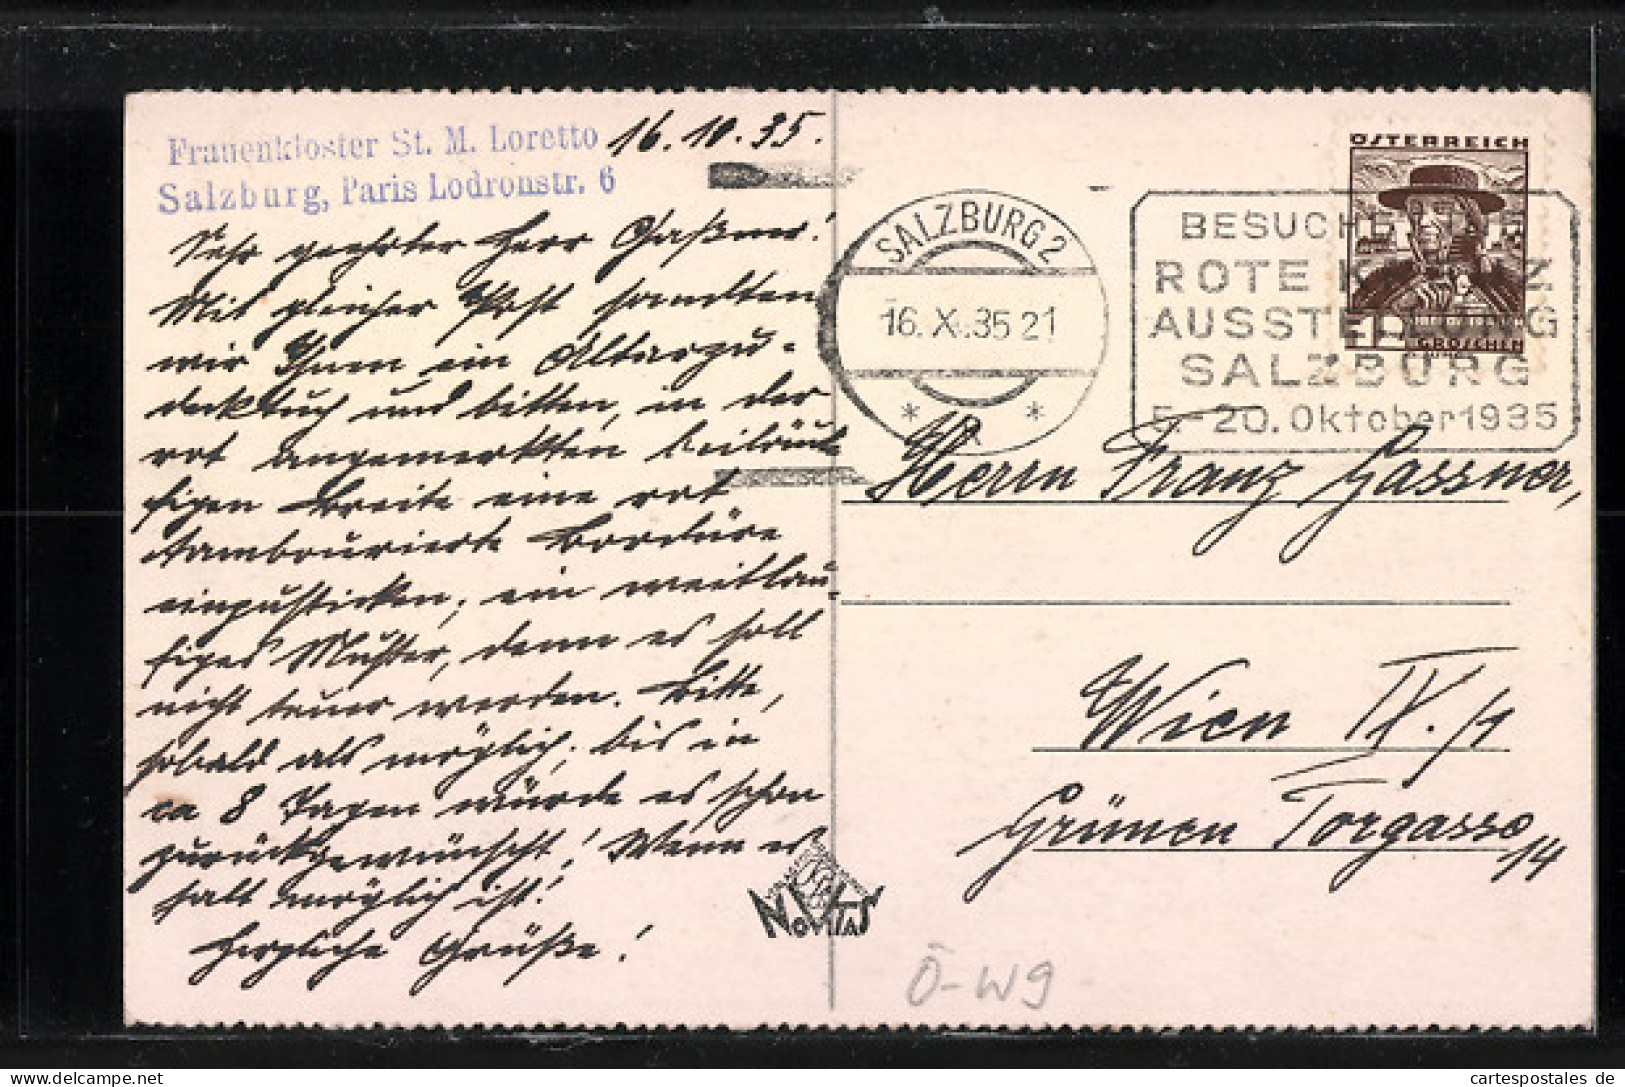 Frauenkloster St. M. Loretto
Salzburg, Paris Lodronstr. 6
16.10.35.
Sehr geehrter Herr Gaßner!
Mit gleicher Post sandten
wir Ihnen ein Altarzu-
decktuch und bitten, in der
rot angemerkten beiläufi
figen Breite eine rot
tambourierte Bordüre
einzusticken; ein weitläu-
figes Muster, denn es soll
nicht teuer werden. Bitte,
sobald als möglich, bis in
ca 8 Tagen würde es schon
zurückgewünscht! Wenn es
halt möglich ist!
Herzliche Grüße!
SALZBURG 2
16. X. 35 21
* *
BESUCHET DIE
ROTE KREUZ
AUSSTELLUNG
SALZBURG
5.-20. Oktober 1935
ÖSTERREICH
GROSCHEN
Herrn Franz Gassner,
Wien IX./1
Grünen Torgasse
14
NOVITAS
Ö-W9
cartespostales de